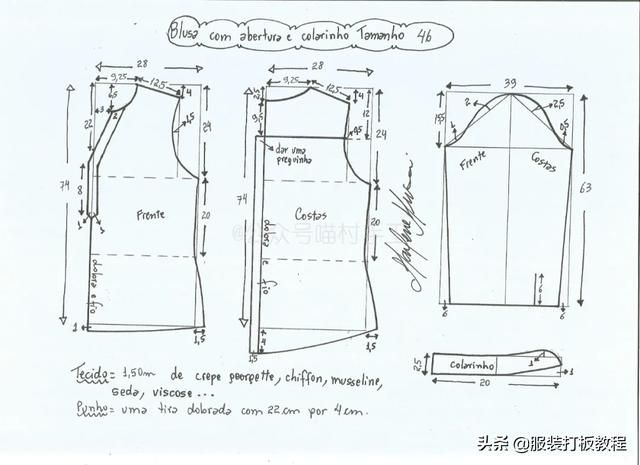 Blusa com abertura e colarinho Tamanho 46
28
9,25
12,5
4
6,5
3
2
22
1,5
24
74
8
1
1
20
Frente
dobra e fio
1
1,5
28
9,25
12,5
2,5
4
9,5
12
0,5
24
dar uma
preguinha
74
Costas
20
dobra e fio
1,5
4
1,5
39
15,5
2
2,5
1
0,5
Frente
Costas
63
6
6
6
2,5
Colarinho
1
1
20
Tecido = 1,50m de crepe georgette, chiffon, musseline,
seda, viscose...
Punho = uma tira dobrada com 22 cm por 4 cm.
头条 @服装打板教程